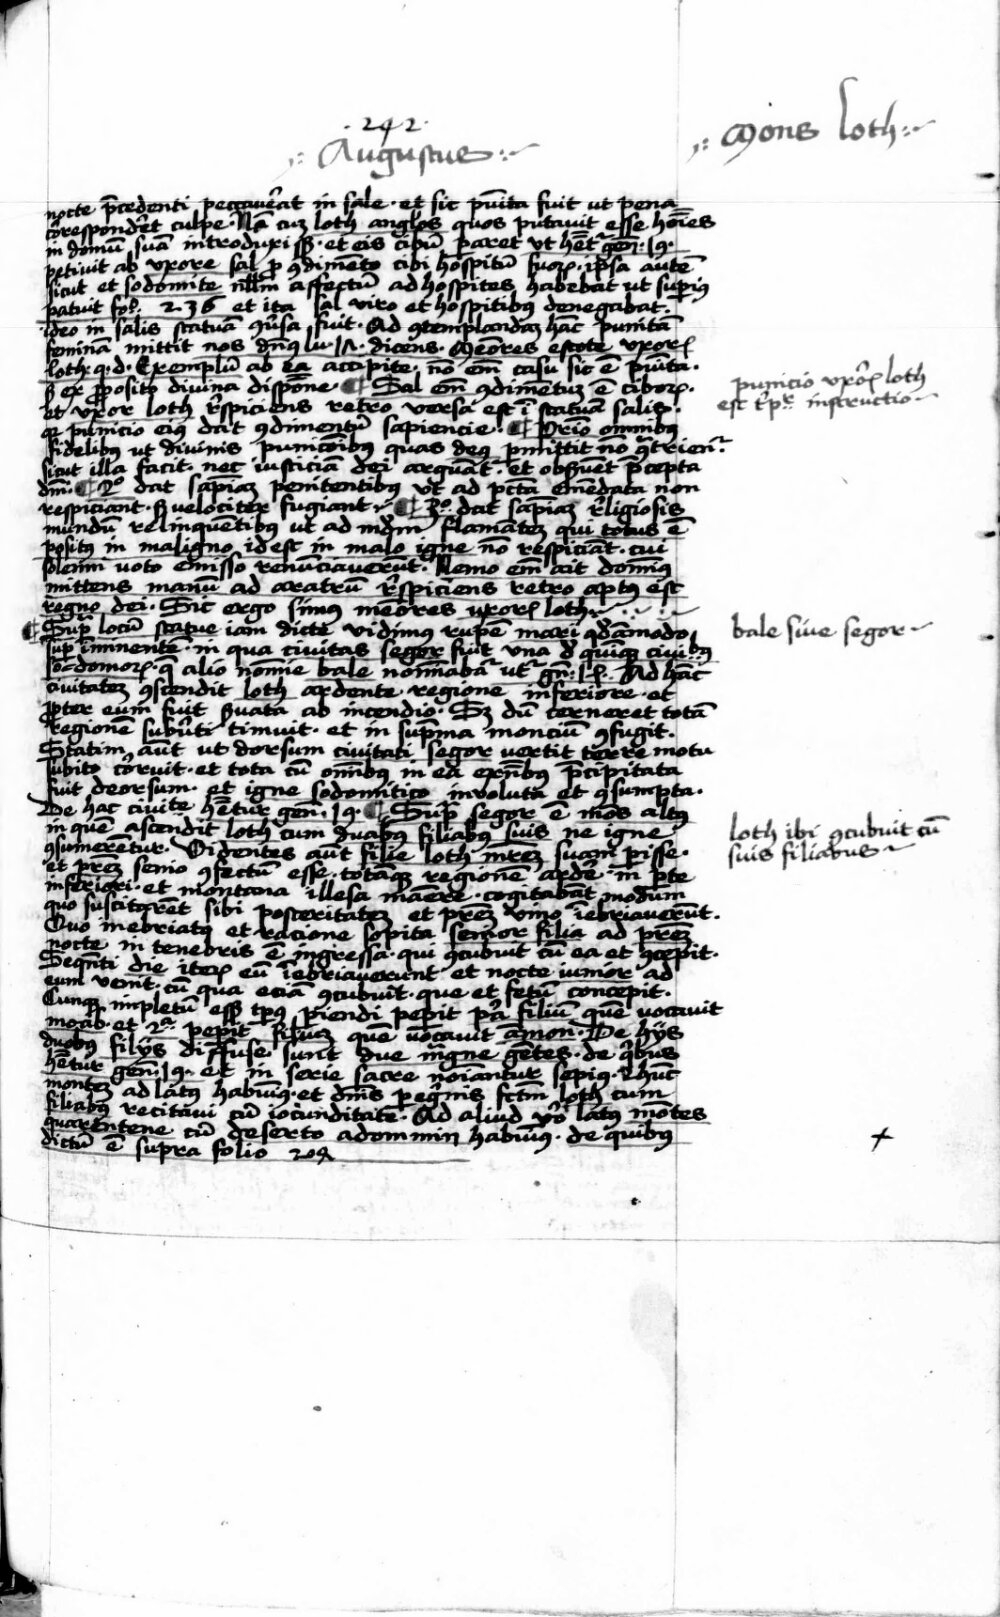 242
Augustus
Mons loth
nocte p̄cedenti peccav̄erat in sale · et sic pūita fuit ut pena
cōrespondēt culpe · Nā cum loth anglos quos putavit esse hōies
in domū suā introduxiss̄ · et eis cibū paret ut hētr gen̄ · 19 ·
petivit ab uxore sal p ꝯdimēto cibi hospitū suoꝝ · ip̄sa autē
sicut et sodomite nllm̄ affectū ad hospites habebat ut sup̄iꝰ
patuit fo · 236 et ita sal viro et hospitibus denegabat ·
ideo in salis statuā v̄sa fuit · Ad ꝯtemplandam hāc punitā
feminā mittit nos dn̄us lu · 17 · dicens · Mēores estote uxorꝭ
loth · q · d · Exemplū ab ea accipite · nō em̄ casu sic ē pūita ·
sꝫ ex p̱posito divina disp̄one · ¶ Sal em̄ ꝯdimētum ē ciboꝝ ·
et uxor loth r̄spiciens retro versa est ī statuā salis ·
qꝫ punicio eiꝰ dat ꝯdimentū sapiencie · ¶ Primo omnibꝰ
fidelibus ut divinis punicōibus quas deꝰ p̱mittit nō ꝯtrient̄ ·
sicut illa facit · nec iusticiā dei arguāt · et obs̄uet p̄cepta
dn̄i · ¶ 2º dat sapiam̄ penitentibus ut ad pctā emēdata non
respiciant · sꝫ velociter fugiant · ¶ 3º dat sapiam̄ r̄ligiosis
mundū relinquentibus ut ad mūdm̄ flamātem qui totus ē
positꝰ in maligno id est in malo igne nō respiciāt · cui
solenni voto emisso renūciaverūt · Nemo em̄ ait dominꝰ
mittens manū ad aratrū r̄spiciens retro aptꝰ est
regno dei · Sic ergo simꝰ mēores uxorꝭ loth ·
¶ Sup̄ locū statue iam dicte vidimꝰ rupē mari q̄dāmodo
sup̄ īminentē · in qua civitas segor fuit una d̄ quinqꝫ civibꝰ
sodomoꝝ · q̄ alio nomine bale nominabat̄ ut gn̄ · 14 · Ad hāc
civitatem ꝯscendit loth ardente regione inferiore · et
p̱pter eum fuit s̄vata ab incendio · Sꝫ dū cerneret totā
regionē subv̄ti timuit · et in sup̄ma monciū ꝯfugit ·
Statim aūt ut dorsum civitati segor vertit terre motu
subito cōrruit · et tota cū omībus in ea exn̄tibus p̄cipitata
fuit deorsum · et igne sodomitico involuta et ꝯsumpta ·
De hac civite hētur gen̄ · 19 · ¶ Sup̄ segor ē mōs altꝰ
in quē ascendit loth cum duabus filiabus suis ne igne
ꝯsumerētur · Videntes aūt filie loth mr̄em suam p̱isse ·
et pr̄em senio ꝯfectū esse · totāqꝫ regionē ardē · in p̱te
inferiori · et montana illesa māere · cogitabāt modum
quo suscitarēt sibi posteritatem et pr̄em vino īebriaverūt ·
Quo inebriatꝰ et racione sopita senior filia ad pr̄em
nocte in tenebris ē ingressa · qui ꝯcubuit cū ea et ꝯcepit ·
Seqn̄ti die iteꝝ eū īebriaverunt et nocte iunior ad
eum venit · cū qua eciā ꝯcubuit · que et fetū concepit ·
Cumqꝫ impletū ess̄ tp̄us p̱iendi pepit p̄a filiū quē vocavit
moab · et 2ª · pepit filium quē vocavit āmon · De hijs
duobus filijs diffuse sunt due mḡne gētes · de q̄bus
hētur gen̄ · 19 · et in serie sacre noīantur sepiꝰ · Ꝫ hūc
montem ad latꝰ habuimꝰ · et dn̄is peg̱nis fctm̄ loth cum
filiabus recitavi cū iocunditate · Ad aliud v̄o latꝰ mōtes
quarentene cū deserto adommin habuimꝰ · de quibus
dictū ē supra folio 209
punicio uxorꝭ loth
est t̄pr̄ instructio
bale sive segor
loth ibi ꝯcubuit cū
suis filiabus